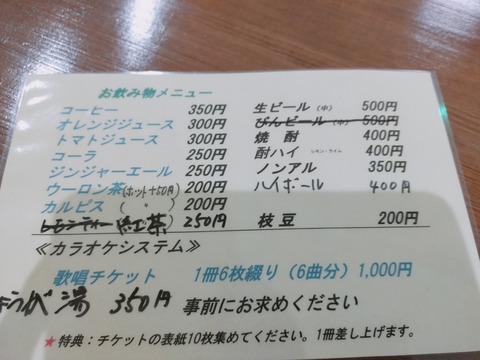 お飲み物メニュー
コーヒー 350円
オレンジジュース 300円
トマトジュース 300円
コーラ 250円
ジンジャーエール 250円
ウーロン茶(ホット+50円) 200円
カルピス ( 〃 ) 200円
レモンティー 紅茶 250円
生ビール (中) 500円
びんビール (中) 500円
焼酎 400円
酎ハイ レモン・ライム 400円
ノンアル 350円
ハイボール 400円
枝豆 200円
≪カラオケシステム≫
歌唱チケット 1冊6枚綴り(6曲分) 1,000円
うが湯 350円 事前にお求めください
★特典:チケットの表紙10枚集めてください。1冊差し上げます。